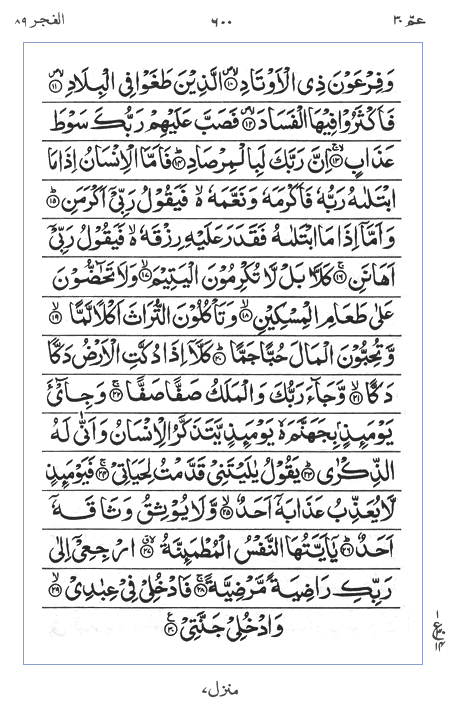 عمّ ٣٠ ٦٠٠ الفجر ٨٩
وَفِرْعَوْنَ ذِى الْاَوْتَادِ ۙ۝١٠ الَّذِيْنَ طَغَوْا فِى الْبِلَادِ ۙ۝١١
فَاَكْثَرُوْا فِيْهَا الْفَسَادَ ۙ۝١٢ فَصَبَّ عَلَيْهِمْ رَبُّكَ سَوْطَ
عَذَابٍ ۚ۝١٣ اِنَّ رَبَّكَ لَبِالْمِرْصَادِ ؕ۝١٤ فَاَمَّا الْاِنْسَانُ اِذَا مَا
ابْتَلٰىهُ رَبُّهٗ فَاَكْرَمَهٗ وَنَعَّمَهٗ ۙ فَيَقُوْلُ رَبِّىْۤ اَكْرَمَنِ ؕ۝١٥
وَاَمَّاۤ اِذَا مَا ابْتَلٰىهُ فَقَدَرَ عَلَيْهِ رِزْقَهٗ ۙ فَيَقُوْلُ رَبِّىْۤ
اَهَانَنِ ۚ۝١٦ كَلَّا بَلْ لَّا تُكْرِمُوْنَ الْيَتِيْمَ ۙ۝١٧ وَلَا تَحٰٓضُّوْنَ
عَلٰى طَعَامِ الْمِسْكِيْنِ ۙ۝١٨ وَتَاْكُلُوْنَ التُّرَاثَ اَكْلًا لَّمًّا ۙ۝١٩
وَّتُحِبُّوْنَ الْمَالَ حُبًّا جَمًّا ؕ۝٢٠ كَلَّاۤ اِذَا دُكَّتِ الْاَرْضُ دَكًّا
دَكًّا ۙ۝٢١ وَّجَآءَ رَبُّكَ وَالْمَلَكُ صَفًّا صَفًّا ۚ۝٢٢ وَجِاىْٓءَ
يَوْمَئِذٍۭ بِجَهَنَّمَ ۙ يَوْمَئِذٍ يَّتَذَكَّرُ الْاِنْسَانُ وَاَنّٰى لَهُ
الذِّكْرٰى ؕ۝٢٣ يَقُوْلُ يٰلَيْتَنِىْ قَدَّمْتُ لِحَيَاتِىْ ۚ۝٢٤ فَيَوْمَئِذٍ
لَّا يُعَذِّبُ عَذَابَهٗۤ اَحَدٌ ۙ۝٢٥ وَّلَا يُوْثِقُ وَثَاقَهٗۤ
اَحَدٌ ؕ۝٢٦ يٰۤاَيَّتُهَا النَّفْسُ الْمُطْمَئِنَّةُ ۖ۝٢٧ ارْجِعِىْۤ اِلٰى
رَبِّكِ رَاضِيَةً مَّرْضِيَّةً ۚ۝٢٨ فَادْخُلِىْ فِىْ عِبٰدِىْ ۙ۝٢٩
وَادْخُلِىْ جَنَّتِىْ ۝٣٠
١
ع
١٤
منزل ٧